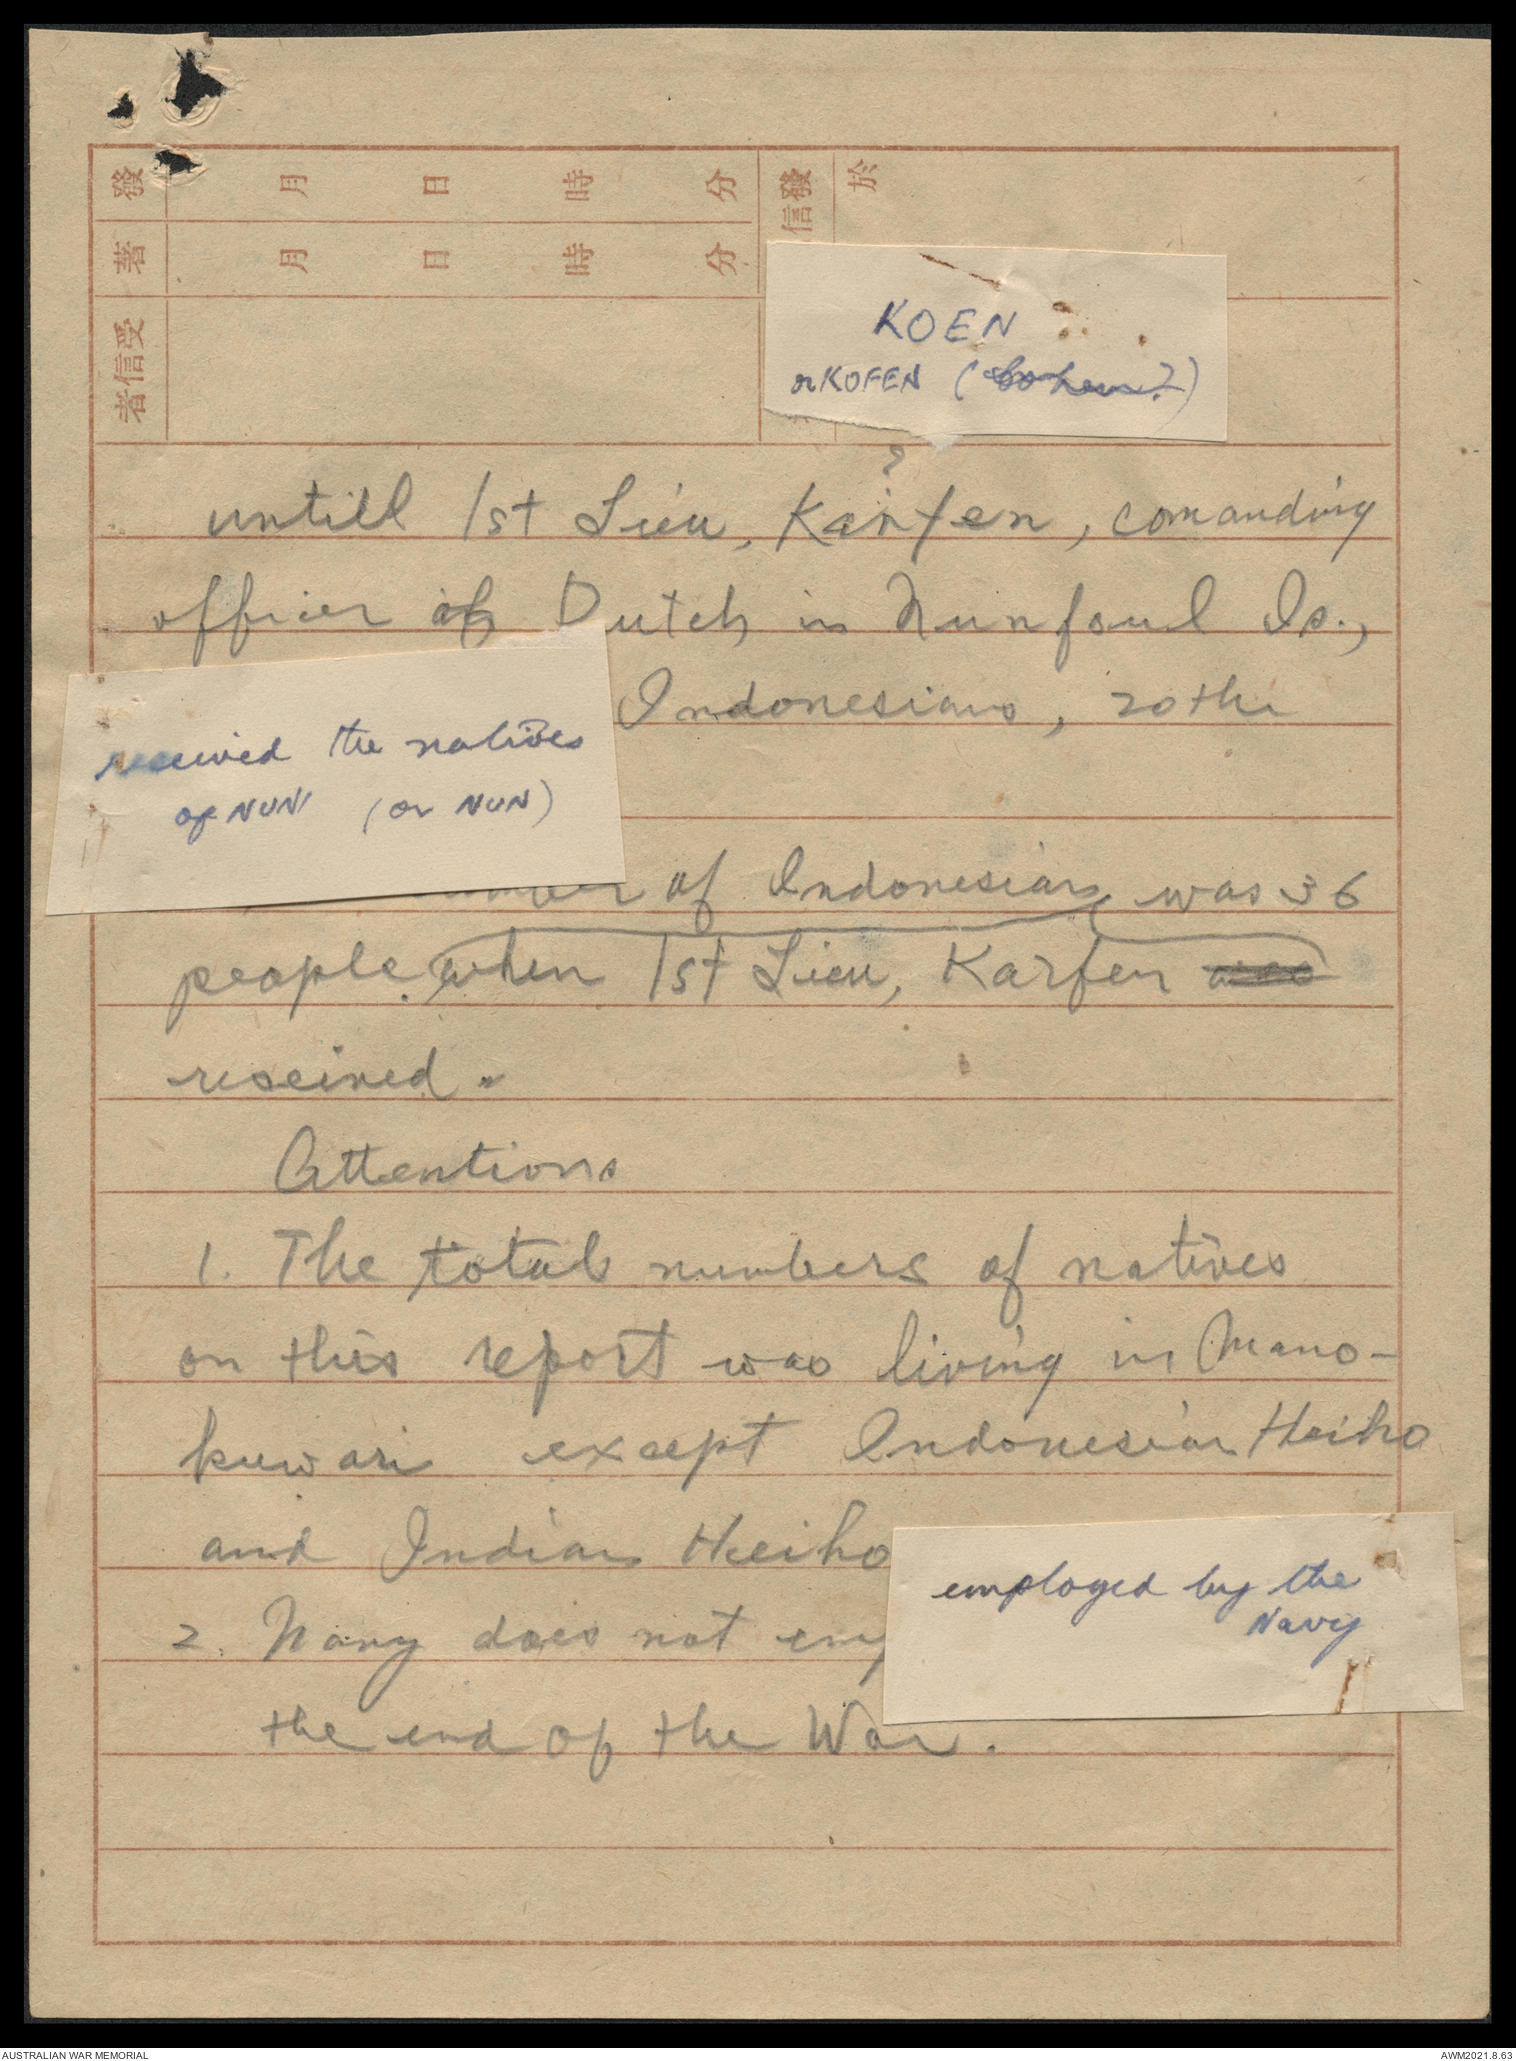 發 月 日 時 分 發信 於
著 月 日 時 分
受信者
KOEN
or KOFEN (
?
untill 1st Lieu, Karfen, comanding
officer of Dutch in Nunfoul Is.,
Indonesians, 20 the
received the natives
of NUN (or NUN)
of Indonesians was 36
people. when 1st Lieu, Karfen was
reseived.
Attentions
1. The total numbers of natives
on this report was living in Mano-
kuwari except Indonesian Heiho
and Indian Heiho
employed by the
Navy
2. does not emp
the end of the War.
AUSTRALIAN WAR MEMORIAL
AWM2021.8.63